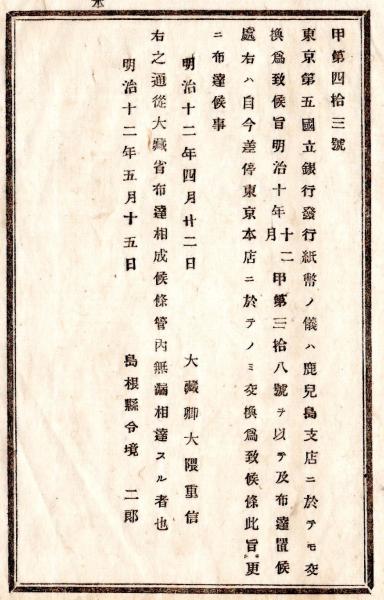 甲第四拾三號
東京第五國立銀行發行紙幣ノ儀ハ鹿兒島支店ニ於テモ交
換爲致候旨明治十年十二月甲第三拾八號ヲ以テ及布達置候
處右ハ自今差停東京本店ニ於テノミ交換爲致候條此旨更
ニ布達候事
明治十二年四月廿二日　大藏卿大隈重信
右之通從大藏省布達相成候條管内無漏相達スル者也
明治十二年五月十五日　島根縣令境　二郎